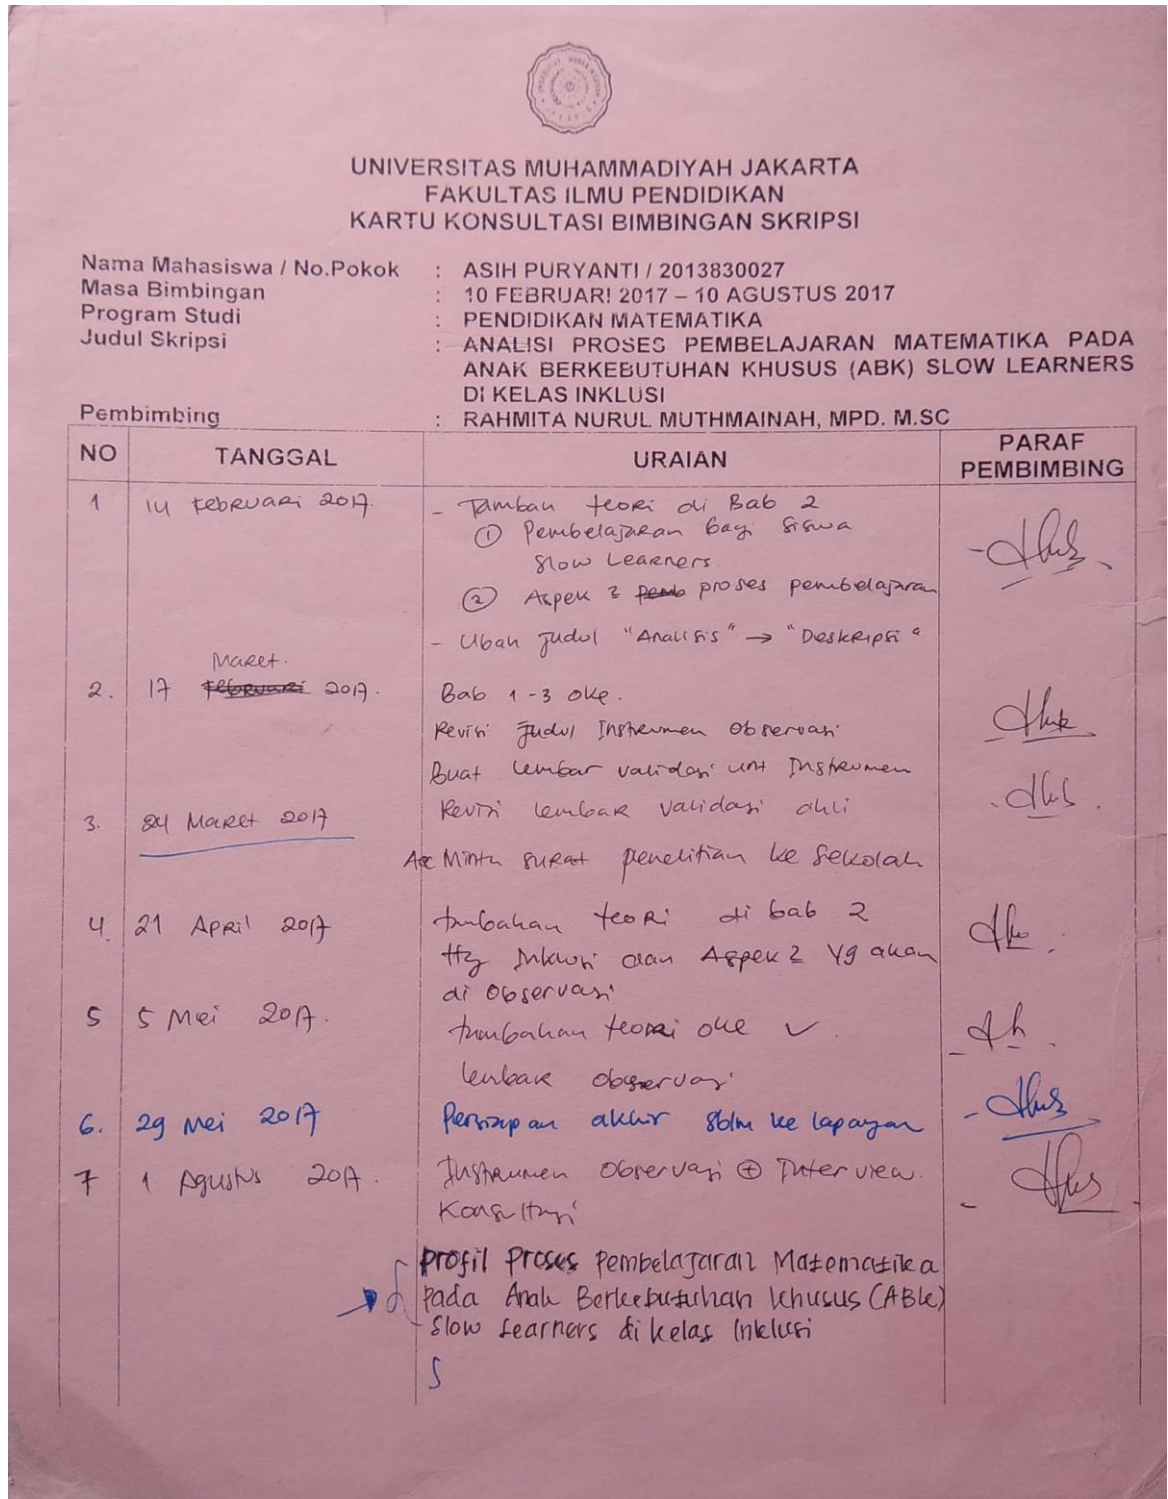 UNIVERSITAS MUHAMMADIYAH JAKARTA
FAKULTAS ILMU PENDIDIKAN
KARTU KONSULTASI BIMBINGAN SKRIPSI
Nama Mahasiswa / No.Pokok : ASIH PURYANTI / 2013830027
Masa Bimbingan : 10 FEBRUARI 2017 – 10 AGUSTUS 2017
Program Studi : PENDIDIKAN MATEMATIKA
Judul Skripsi : ANALISI PROSES PEMBELAJARAN MATEMATIKA PADA
ANAK BERKEBUTUHAN KHUSUS (ABK) SLOW LEARNERS
DI KELAS INKLUSI
Pembimbing : RAHMITA NURUL MUTHMAINAH, MPD. M.SC
NO TANGGAL URAIAN PARAF PEMBIMBING
1 14 Februari 2017. - Tambah teori di Bab 2
① Pembelajaran bagi siswa
Slow Learners.
② Aspek 2 proses pembelajaran
- Ubah judul "Analisis" → "Deskripsi"
Maret.
2. 17 Februari 2017. Bab 1-3 oke.
Revisi judul Instrumen Observasi
Buat lembar validasi unt Instrumen
3. 24 Maret 2017 Revisi lembar validasi ahli
Minta surat penelitian ke sekolah
4. 21 April 2017 tambahan teori di bab 2
ttg Inklusi dan Aspek 2 yg akan
di observasi
5 5 Mei 2017. tambahan teori oke ✓.
lembar observasi
6. 29 Mei 2017 Persiapan akhir sblm ke lapangan
7 1 Agustus 2017. Instrumen Observasi ⊕ Interview.
Konsultasi
Profil Proses Pembelajaran Matematika
→ pada Anak Berkebutuhan Khusus (ABK)
Slow Learners di kelas Inklusi